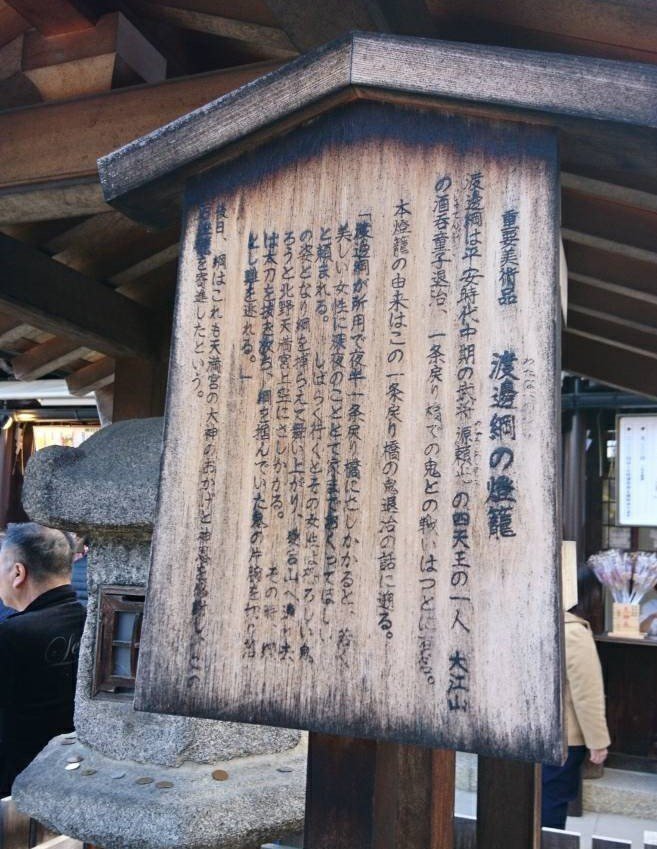 重要美術品
渡邊綱の燈籠
わたなべ
渡邊綱は平安時代中期の武将 源頼光の四天王の一人 大江山
の酒呑童子退治、一条戻り橋での鬼との戦いはつとに有名。
本燈籠の由来はこの一条戻り橋の鬼退治の話に遡る。
「渡邊綱が所用で夜半一条戻り橋にさしかかると、若く
美しい女性に深夜のこととて家まで おくってほしい
と頼まれる。 しばらく行くとその女性は 恐ろしい鬼
の姿となり綱を捕らえて舞い上がり、愛宕山へ
ろうと北野天満宮上空にさしかかる。 その時 綱
は太刀を抜き 綱を掴んでいた鬼の片腕を 切り
とし難を逃れる。」
後日、綱はこれも天満宮の大神のおかげと神恩 この
を寄進したという。